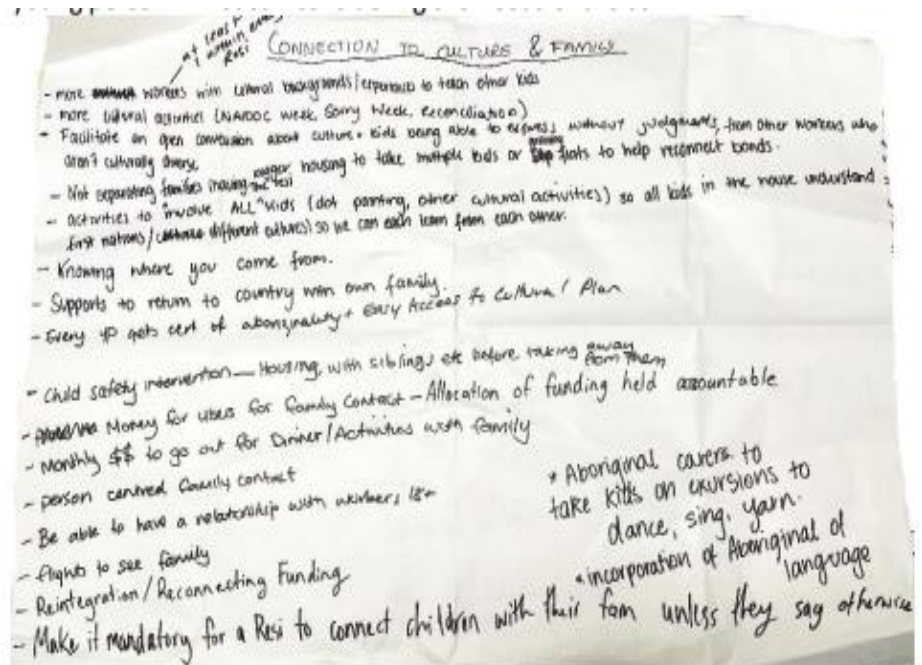 at least
1 within every
Resi
CONNECTION TO CULTURE & FAMILY
- more workers with cultural backgrounds/experiences to teach other kids
- more cultural activities (NAIDOC week, Sorry Week, Reconciliation)
- Facilitate an open conversation about culture + kids being able to express without judgments, from other workers who
aren't culturally diverse.
- Not separating families (having bigger housing to take multiple kids or flats to help reconnect bonds.
- activities to involve ALL kids (dot painting, other cultural activities) so all kids in the house understand
first nations/ different cultures) so we can each learn from each other.
- Knowing where you come from.
- Supports to return to country with own family.
- Every YP gets cert of aboriginality + Easy Access to Cultural Plan
- Child safety intervention — Housing, with siblings etc before taking away
from them
- Money for ubers for family contact - Allocation of funding held accountable
- Monthly $$ to go out for Dinner/Activities with family
- person centred family contact
- Be able to have a relationship with workers, 18+
- flights to see family
- Reintegration/Reconnecting Funding
* Aboriginal carers to
take kids on exursions to
dance, sing, yarn.
* incorporation of Aboriginal of
language
- Make it mandatory for a Resi to connect children with their fam unless they say otherwise